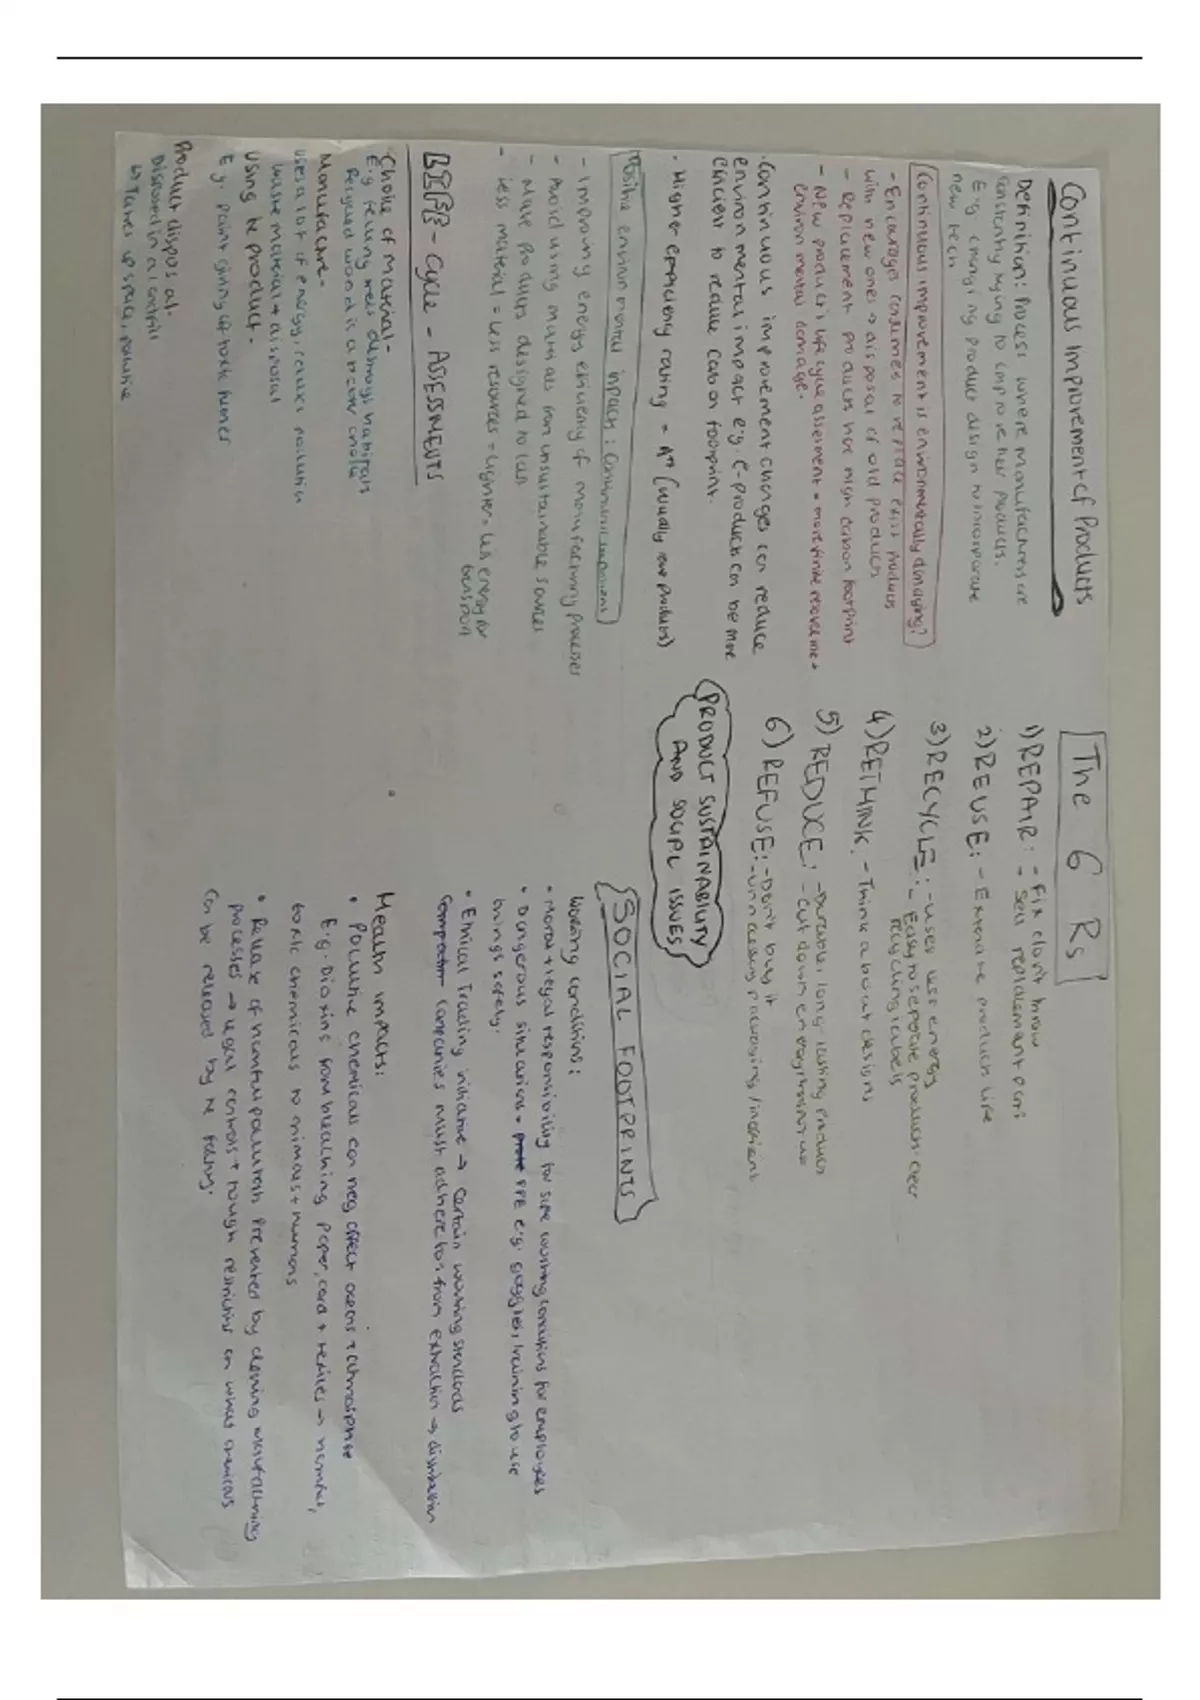 Continuous Improvement of Products
Definition: Process where manufacturers are
constantly trying to improve their products.
E.g changing product design to incorporate
new tech
Continuous improvement is environmentally damaging?
- Encourages consumers to replace exist products
with new ones → disposal of old products
- Replacement products have high carbon footprint
- New product's life cycle assesment = more finite resource +
environmental damage.
• Continuous improvement changes can reduce
environmental impact e.g. E-products can be more
efficient to reduce carbon footprint.
• Higher efficiency rating = A++ (usually new products)
Positive environmental impact: Continuous improvement
- Improving energy efficiency of manufacturing processes
- Avoid using materials from unsustainable sources
- Make Products designed to last
- less material = less resources = lighter = less energy for
transport
LIFE - Cycle - ASSESSMENTS
Choice of material -
E.g felling trees damage habitats
Recycled wood is a better choice
Manufacture -
uses a lot of energy, causes pollution
waste material + disposal
Using the product -
E.g. paint giving of toxic fumes
Product disposal -
Disposed in a landfill
↳ Takes up space, pollutive
The 6 Rs
1) REPAIR: - Fix don't throw
- Sell replacement part
2) REUSE: - Extend the product life
3) RECYCLE: - uses less energy
- Easy to seperate product: clear
recycling labels
4) RETHINK: - Think about designs
5) REDUCE: - Durable, long-lasting products
- Cut down energy/transport use
6) REFUSE: - Don't buy it
- unnecessary packaging/inefficient
PRODUCT SUSTAINABILITY
AND SOCIAL ISSUES
SOCIAL FOOTPRINTS
Working conditions:
• Moral + legal responsibility for safe working conditions for employees
• Dangerous situations = PPE e.g. goggles, training to use
things safely.
• Ethical Trading initiative → Certain working standards
Companies must adhere to from extraction → distribution
Health impacts:
• Pollutive chemicals can neg affect oceans + atmosphere
E.g. Dioxins from bleaching paper, card + textiles → harmful,
toxic chemicals to animals + humans
• Release of harmful pollutants Prevented by cleaning manufacturing
processes → legal controls + tough restrictions on what chemicals
can be released by the factory.